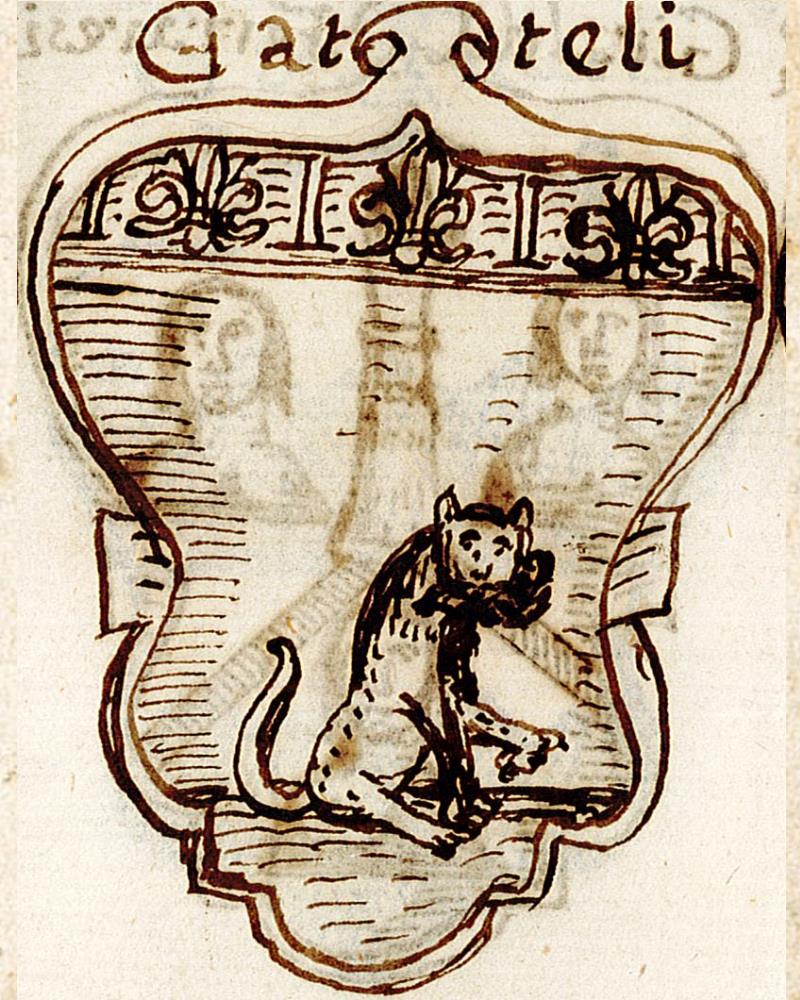 Gato steli